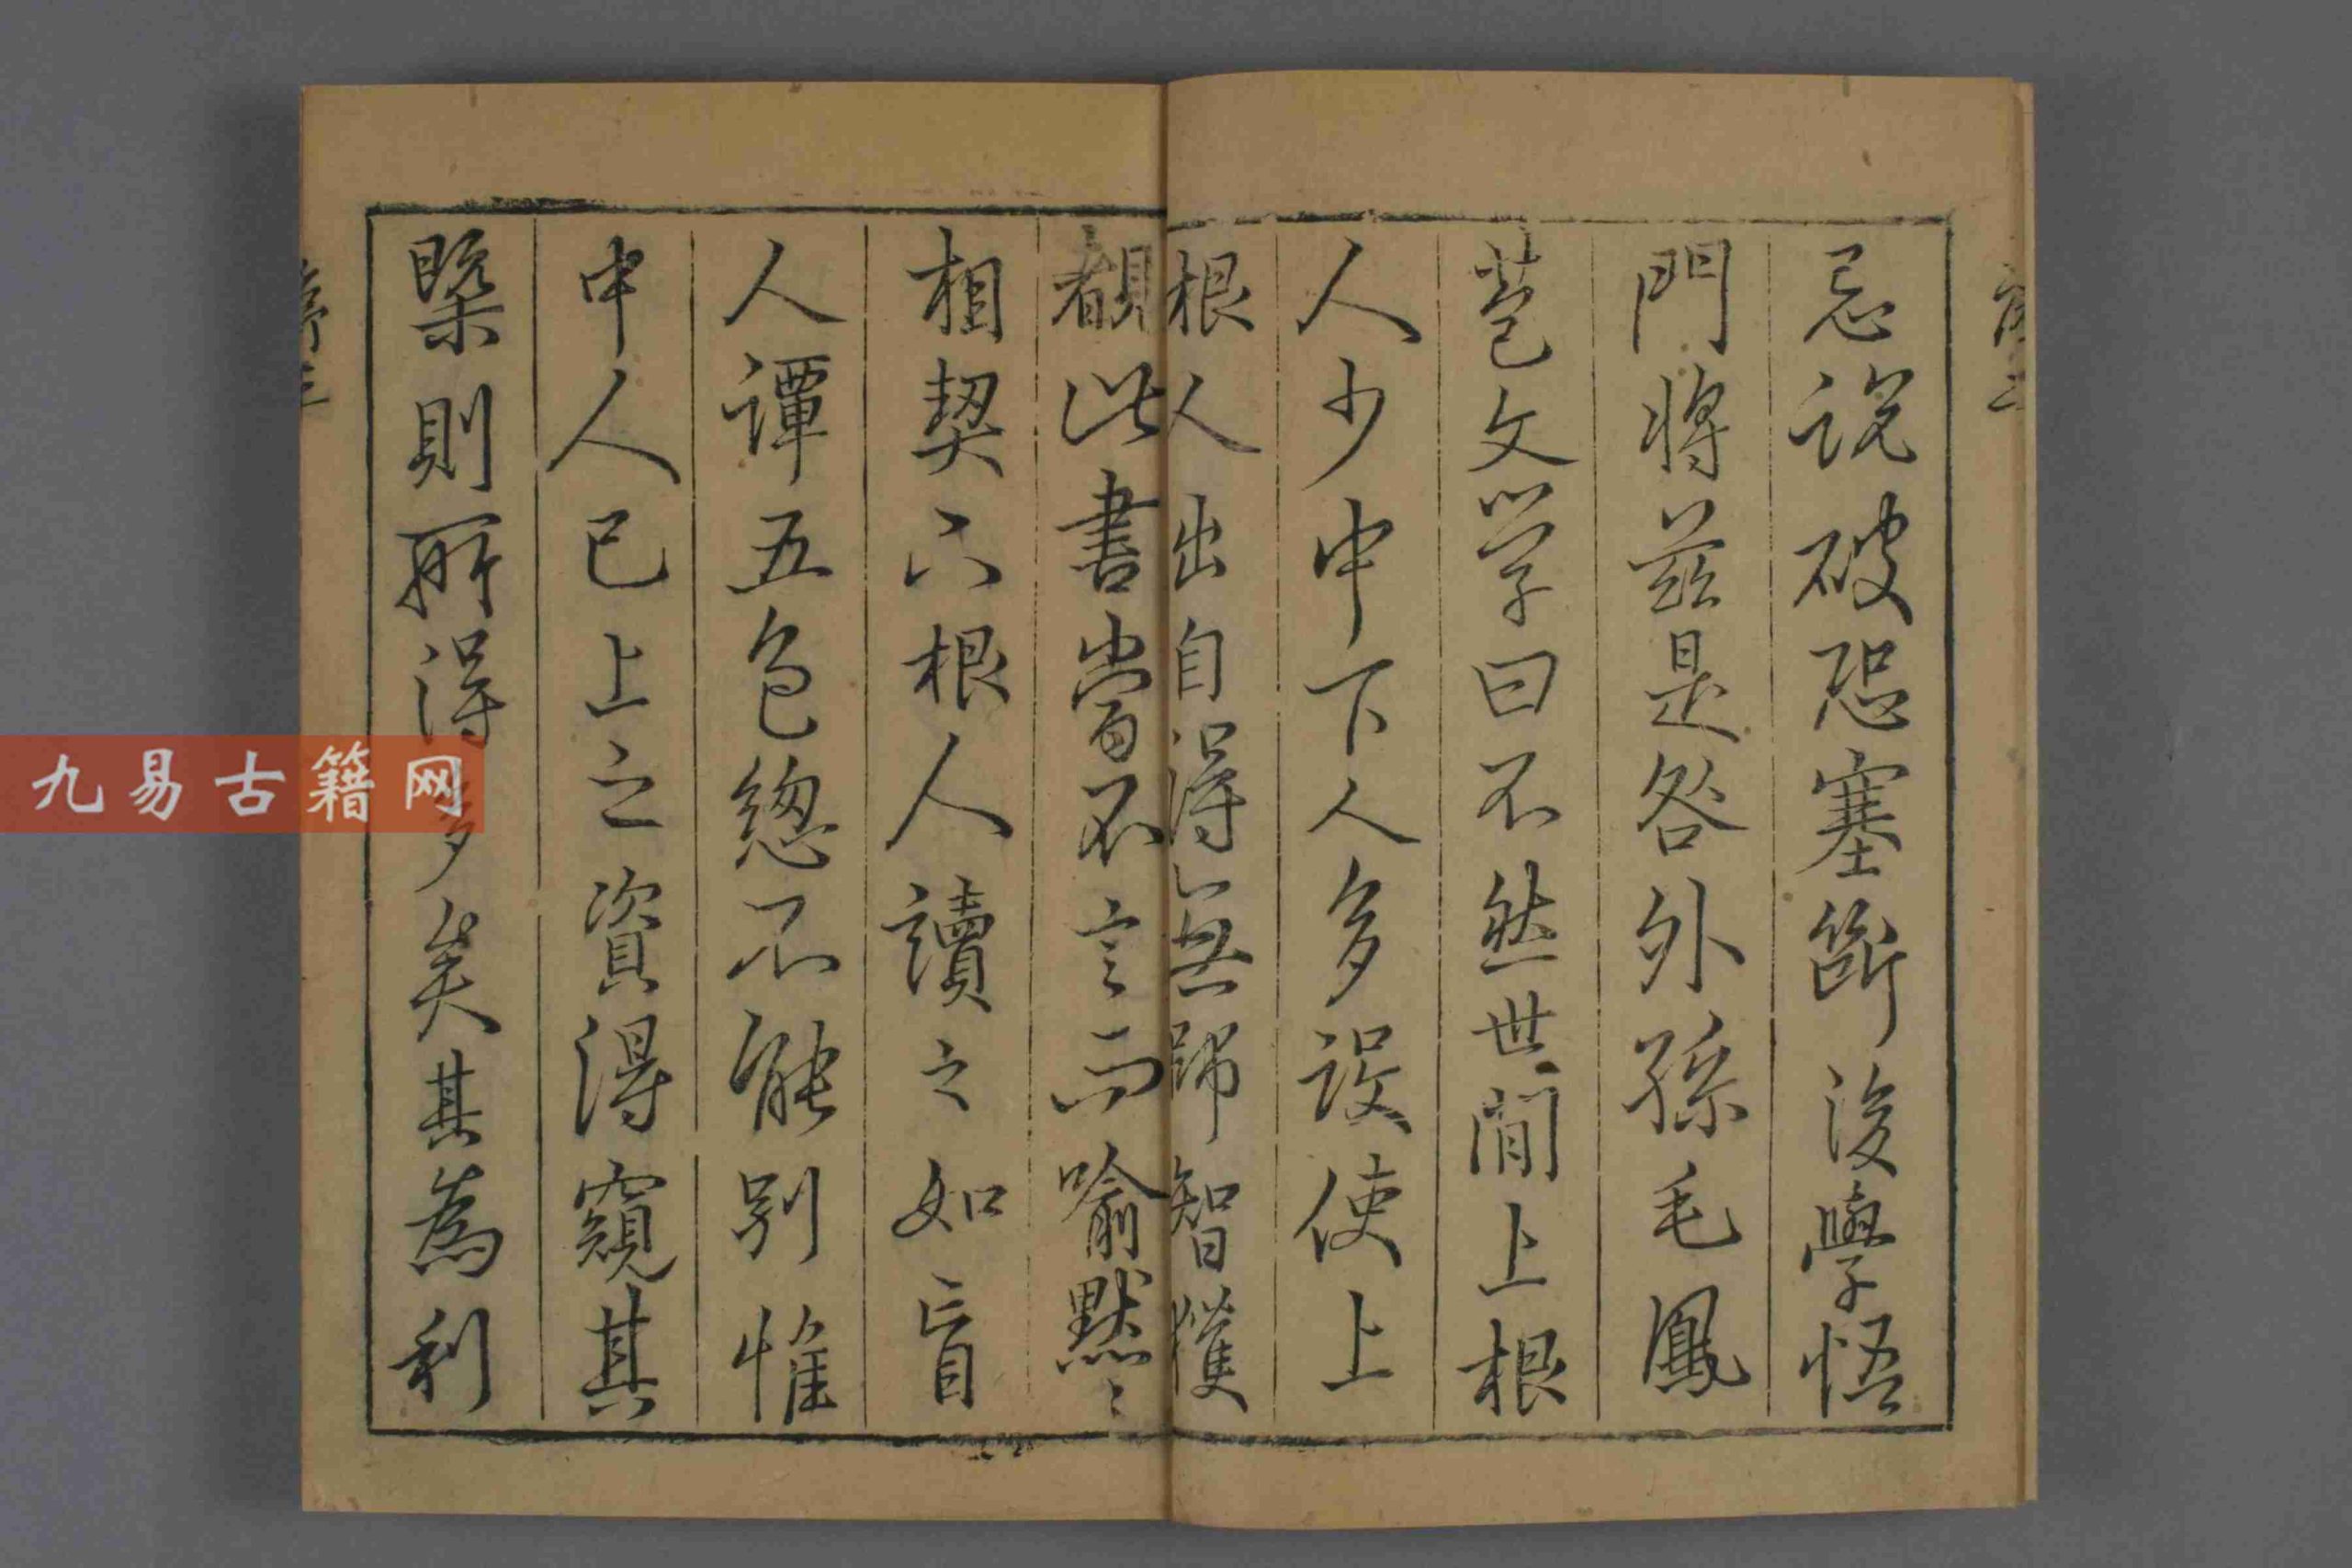 忌說破恐塞斷後學悟
門將茲是咎外孫毛鳳
苞文學曰不然世間上根
人少中下人多設使上
根人出自得無師智獲
覩此書當不言而喻默〻
相契下根人讀之如盲
人譚五色總不能別惟
中人已上之資得窺其
槩則所得多矣其為利
序二
序三
九易古籍网